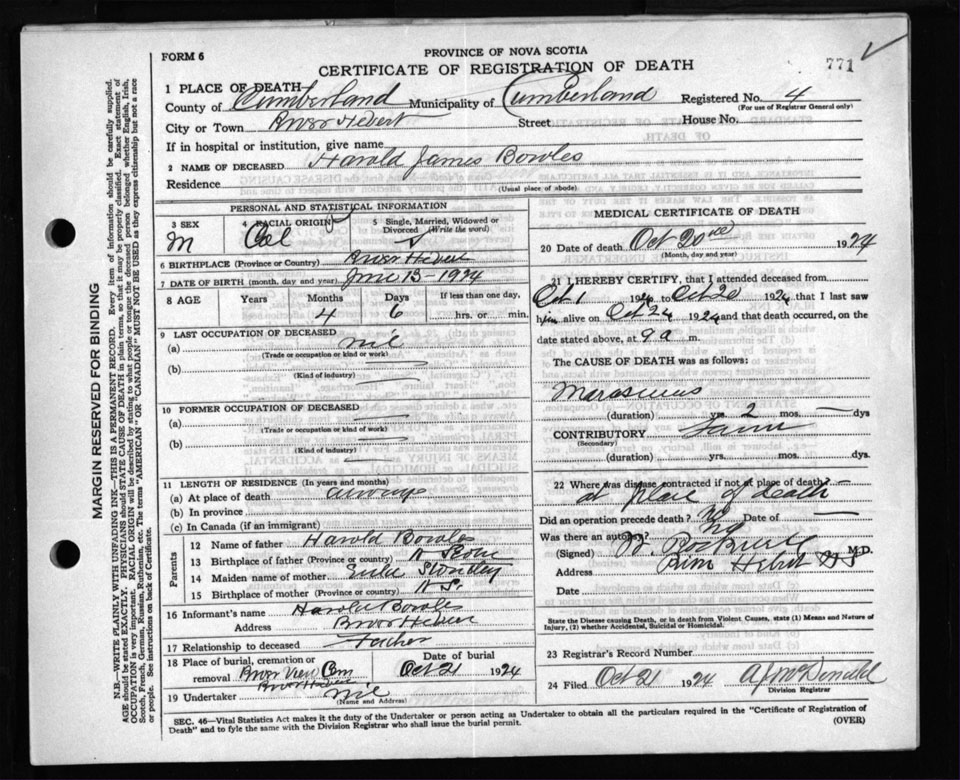 FORM 6
PROVINCE OF NOVA SCOTIA
CERTIFICATE OF REGISTRATION OF DEATH
771
1 PLACE OF DEATH—
County of Cumberland Municipality of Cumberland Registered No. 4
(For use of Registrar General only)
City or Town River Hebert Street House No.
If in hospital or institution, give name
2 NAME OF DECEASED Harold James Bowles
Residence
(Usual place of abode)
PERSONAL AND STATISTICAL INFORMATION
3 SEX 4 RACIAL ORIGIN 5 Single, Married, Widowed or
Divorced (Write the word)
M Col S
6 BIRTHPLACE (Province or Country) River Hebert
7 DATE OF BIRTH (month, day and year) June 15-1924
8 AGE Years Months Days If less than one day,
4 6 hrs. or min.
9 LAST OCCUPATION OF DECEASED
(a) nil
(Trade or occupation or kind or work)
(b)
(Kind of industry)
10 FORMER OCCUPATION OF DECEASED
(a)
(Trade or occupation or kind of work)
(b)
(Kind of industry)
11 LENGTH OF RESIDENCE (In years and months)
(a) At place of death always
(b) In province
(c) In Canada (if an immigrant)
Parents
12 Name of father Harold Bowles
13 Birthplace of father (Province or country) N Scotia
14 Maiden name of mother
15 Birthplace of mother (Province or country) N S.
16 Informant's name Harold Bowles
Address River Hebert
17 Relationship to deceased Father
18 Place of burial, cremation or Date of burial
removal River View Cem Oct 21 1924
River Hebert
19 Undertaker nil
(Name and Address)
MEDICAL CERTIFICATE OF DEATH
20 Date of death Oct 20 1924
(Month, day and year)
21 I HEREBY CERTIFY, that I attended deceased from
Oct 1 1924 to Oct 20 1924 that I last saw
him alive on Oct 24 1924 and that death occurred, on
date stated above, at 9 a m.
The CAUSE OF DEATH was as follows:
Marasmus
(duration) yrs. 2 mos. — dys
CONTRIBUTORY
(Secondary)
(duration) yrs. mos. dys.
22 Where was disease contracted if not at place of death?
at place of death
Did an operation precede death? No Date of —
Was there an autopsy? No
(Signed) Rockwell M.D.
Address River Hebert N S
Date
State the Disease causing Death, or in death from Violent Causes, state (1) Means and Nature of
Injury, (2) whether Accidental, Suicidal or Homicidal.
23 Registrar's Record Number
24 Filed Oct 21 1924 A J McDonald
Division Registrar
SEC. 46—Vital Statistics Act makes it the duty of the Undertaker or person acting as Undertaker to obtain all the particulars required in the "Certificate of Registration of
Death" and to fyle the same with the Division Registrar who shall issue the burial permit. (OVER)
MARGIN RESERVED FOR BINDING
N.B.—WRITE PLAINLY WITH UNFADING INK—THIS IS A PERMANENT RECORD. Every item of information should be carefully supplied.
AGE should be stated EXACTLY. PHYSICIANS should STATE CAUSE OF DEATH in plain terms, so that it may be properly classified. Exact statement of
OCCUPATION is very important. RACIAL ORIGIN will be described by stating to what people or tongue the deceased person belonged whether English, Irish,
Scotch, French, German, Russian, Ruthenian, etc. The terms "AMERICAN" or "CANADIAN" MUST NOT BE USED as they express citizenship but not a race
or people. See instructions on back of Certificate.